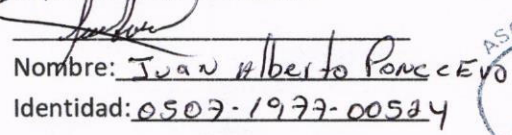 Nombre: Juan Alberto
Identidad: 0507-1977-00524
ASA